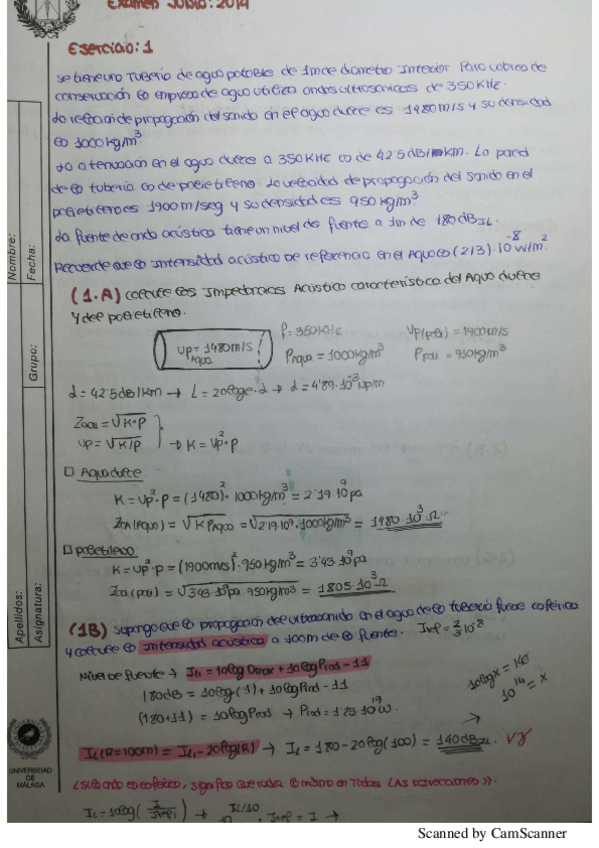 Examen Junio: 2014
Ejercicio: 1
se tiene una Tuberia de agua potable de 1m de diametro Interior Para labores de
conservación la empresa de agua utiliza ondas ultrasonicas de 350KHz.
La velocidad de propagación del sonido en el agua dulce es 1480m/s y su densidad
es 1000kg/m³
La atenuación en el agua dulce a 350KHz es de 42'5dB/km. La pared
de la tuberia es de polietileno. La velocidad de propagación del sonido en el
polietileno es 1900m/seg y su densidad es 950kg/m³
La fuente de onda acústica tiene un nivel de fuente a 1m de 180dB IL.
Recuerde que la Intensidad acústica de referencia en el Agua es (2/3)·10⁻⁸ W/m².
(1.A) calcule las Impedancias Acústica característica del Agua dulce
y del polietileno.
Vp = 1480m/s
Agua
f = 350KHz
ρAgua = 1000kg/m³
Vp(poli) = 1900m/s
ρpoli = 950kg/m³
α = 42'5dB/km → L = 20loge·α → α = 4'89·10⁻³ Np/m
Zoa = √K·ρ
Vp = √K/ρ → K = Vp²·ρ
Agua dulce
K = Vp²·ρ = (1480)²·1000kg/m³ = 2'19·10⁹pa
Zoa(Agua) = √K ρAgua = √2'19·10⁹·1000kg/m³ = 1480·10³Ω
polietileno
K = Vp²·ρ = (1900m/s)²·950kg/m³ = 3'43·10⁹pa
Zoa(poli) = √3'43·10⁹pa 950kg/m³ = 1805·10³Ω
(1B) suponga que la propagación del ultrasonido en el agua de la tuberia fuese esférica
y calcule la Intensidad acústica a 100m de la fuente. Iref = 2/3·10⁻⁸
Nivel de fuente → IL1 = 10log Dmax + 10log Prad - 11
180dB = 10log(1) + 10log Prad - 11
(180+11) = 10log Prad → Prad = 1'25·10¹⁹W.
10logx = 140
10¹⁴ = x
IL(R=100m) = IL1 - 20log(R) → IL = 180 - 20log(100) = 140dB IL.
<Siendo esférico, significa que radia lo mismo en Todas LAS direcciones>.
IL = 10log(I/Iref) → 10^IL/10 · Iref = I →
Nombre:
Fecha:
Grupo:
Apellidos:
Asignatura:
UNIVERSIDAD
DE
MÁLAGA
Scanned by CamScanner